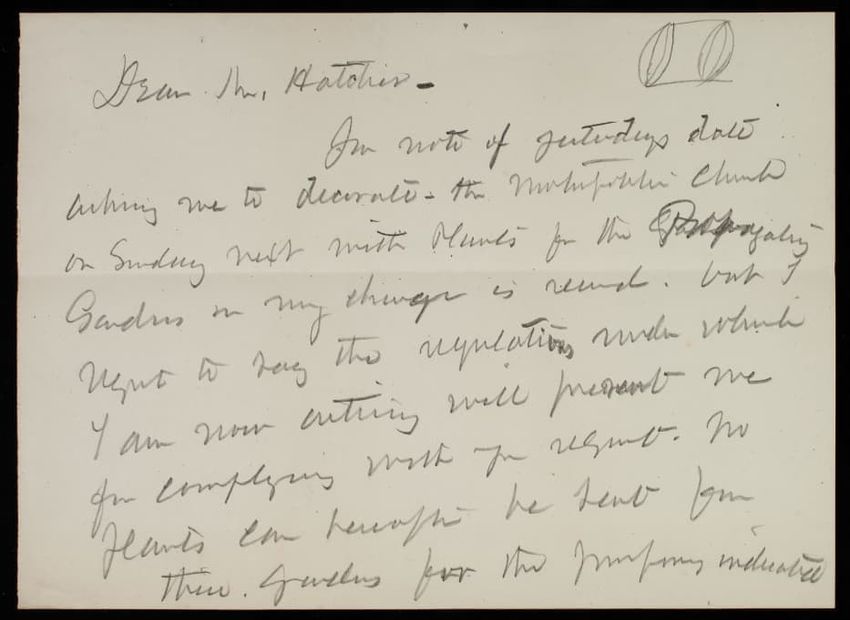 Dear Mr. Hatcher -
Your note of yesterdays date
asking me to decorate - the Metropolitan Church
on Sunday next with Plants from the Propagating
Gardens in my charge is recvd. but I
regret to say the regulations under which
I am now acting will prevent me
from complying with your request. No
plants can hereafter be sent from
these Gardens for the purposes indicated